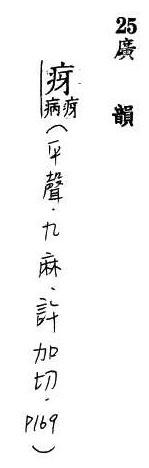 25廣韻
疨
疨病(平聲.九麻.許加切.P169)